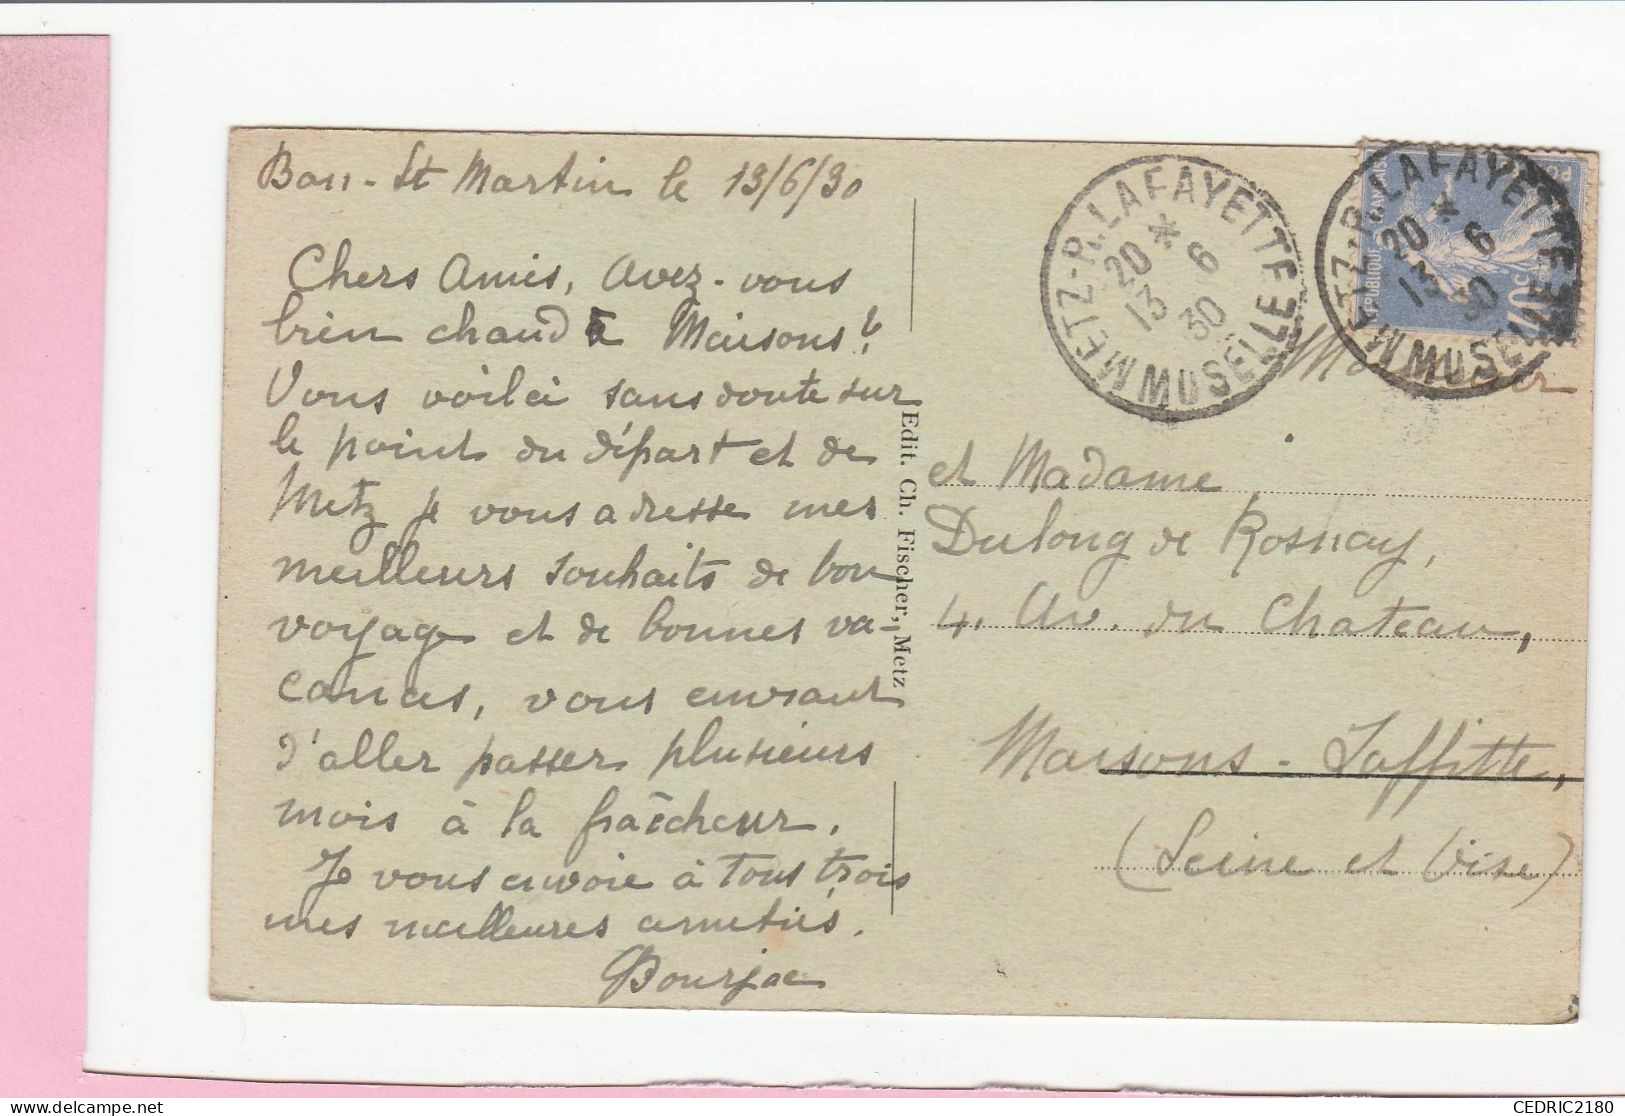 Ban-St Martin le 13/6/30
Chers Amis, Avez-vous
bien chaud à Maisons?
Vous voilà sans doute sur
le point du départ et de
Metz je vous adresse mes
meilleurs souhaits de bon
voyage et de bonnes va-
cances, vous enviant
d'aller passer plusieurs
mois à la fraîcheur.
Je vous envoie à tous trois
mes meilleures amitiés.
Bourjac
Edit. Ch. Fischer, Metz
METZ-R.LAFAYETTE
20 * 6
13 30
MOSELLE
METZ-R.LAFAYETTE
20 * 6
13 30
MOSELLE
et Madame
Dulong de Rosnay,
4. Av. du Chateau,
Maisons-Laffitte,
(Seine et Oise)
CEDRIC2180